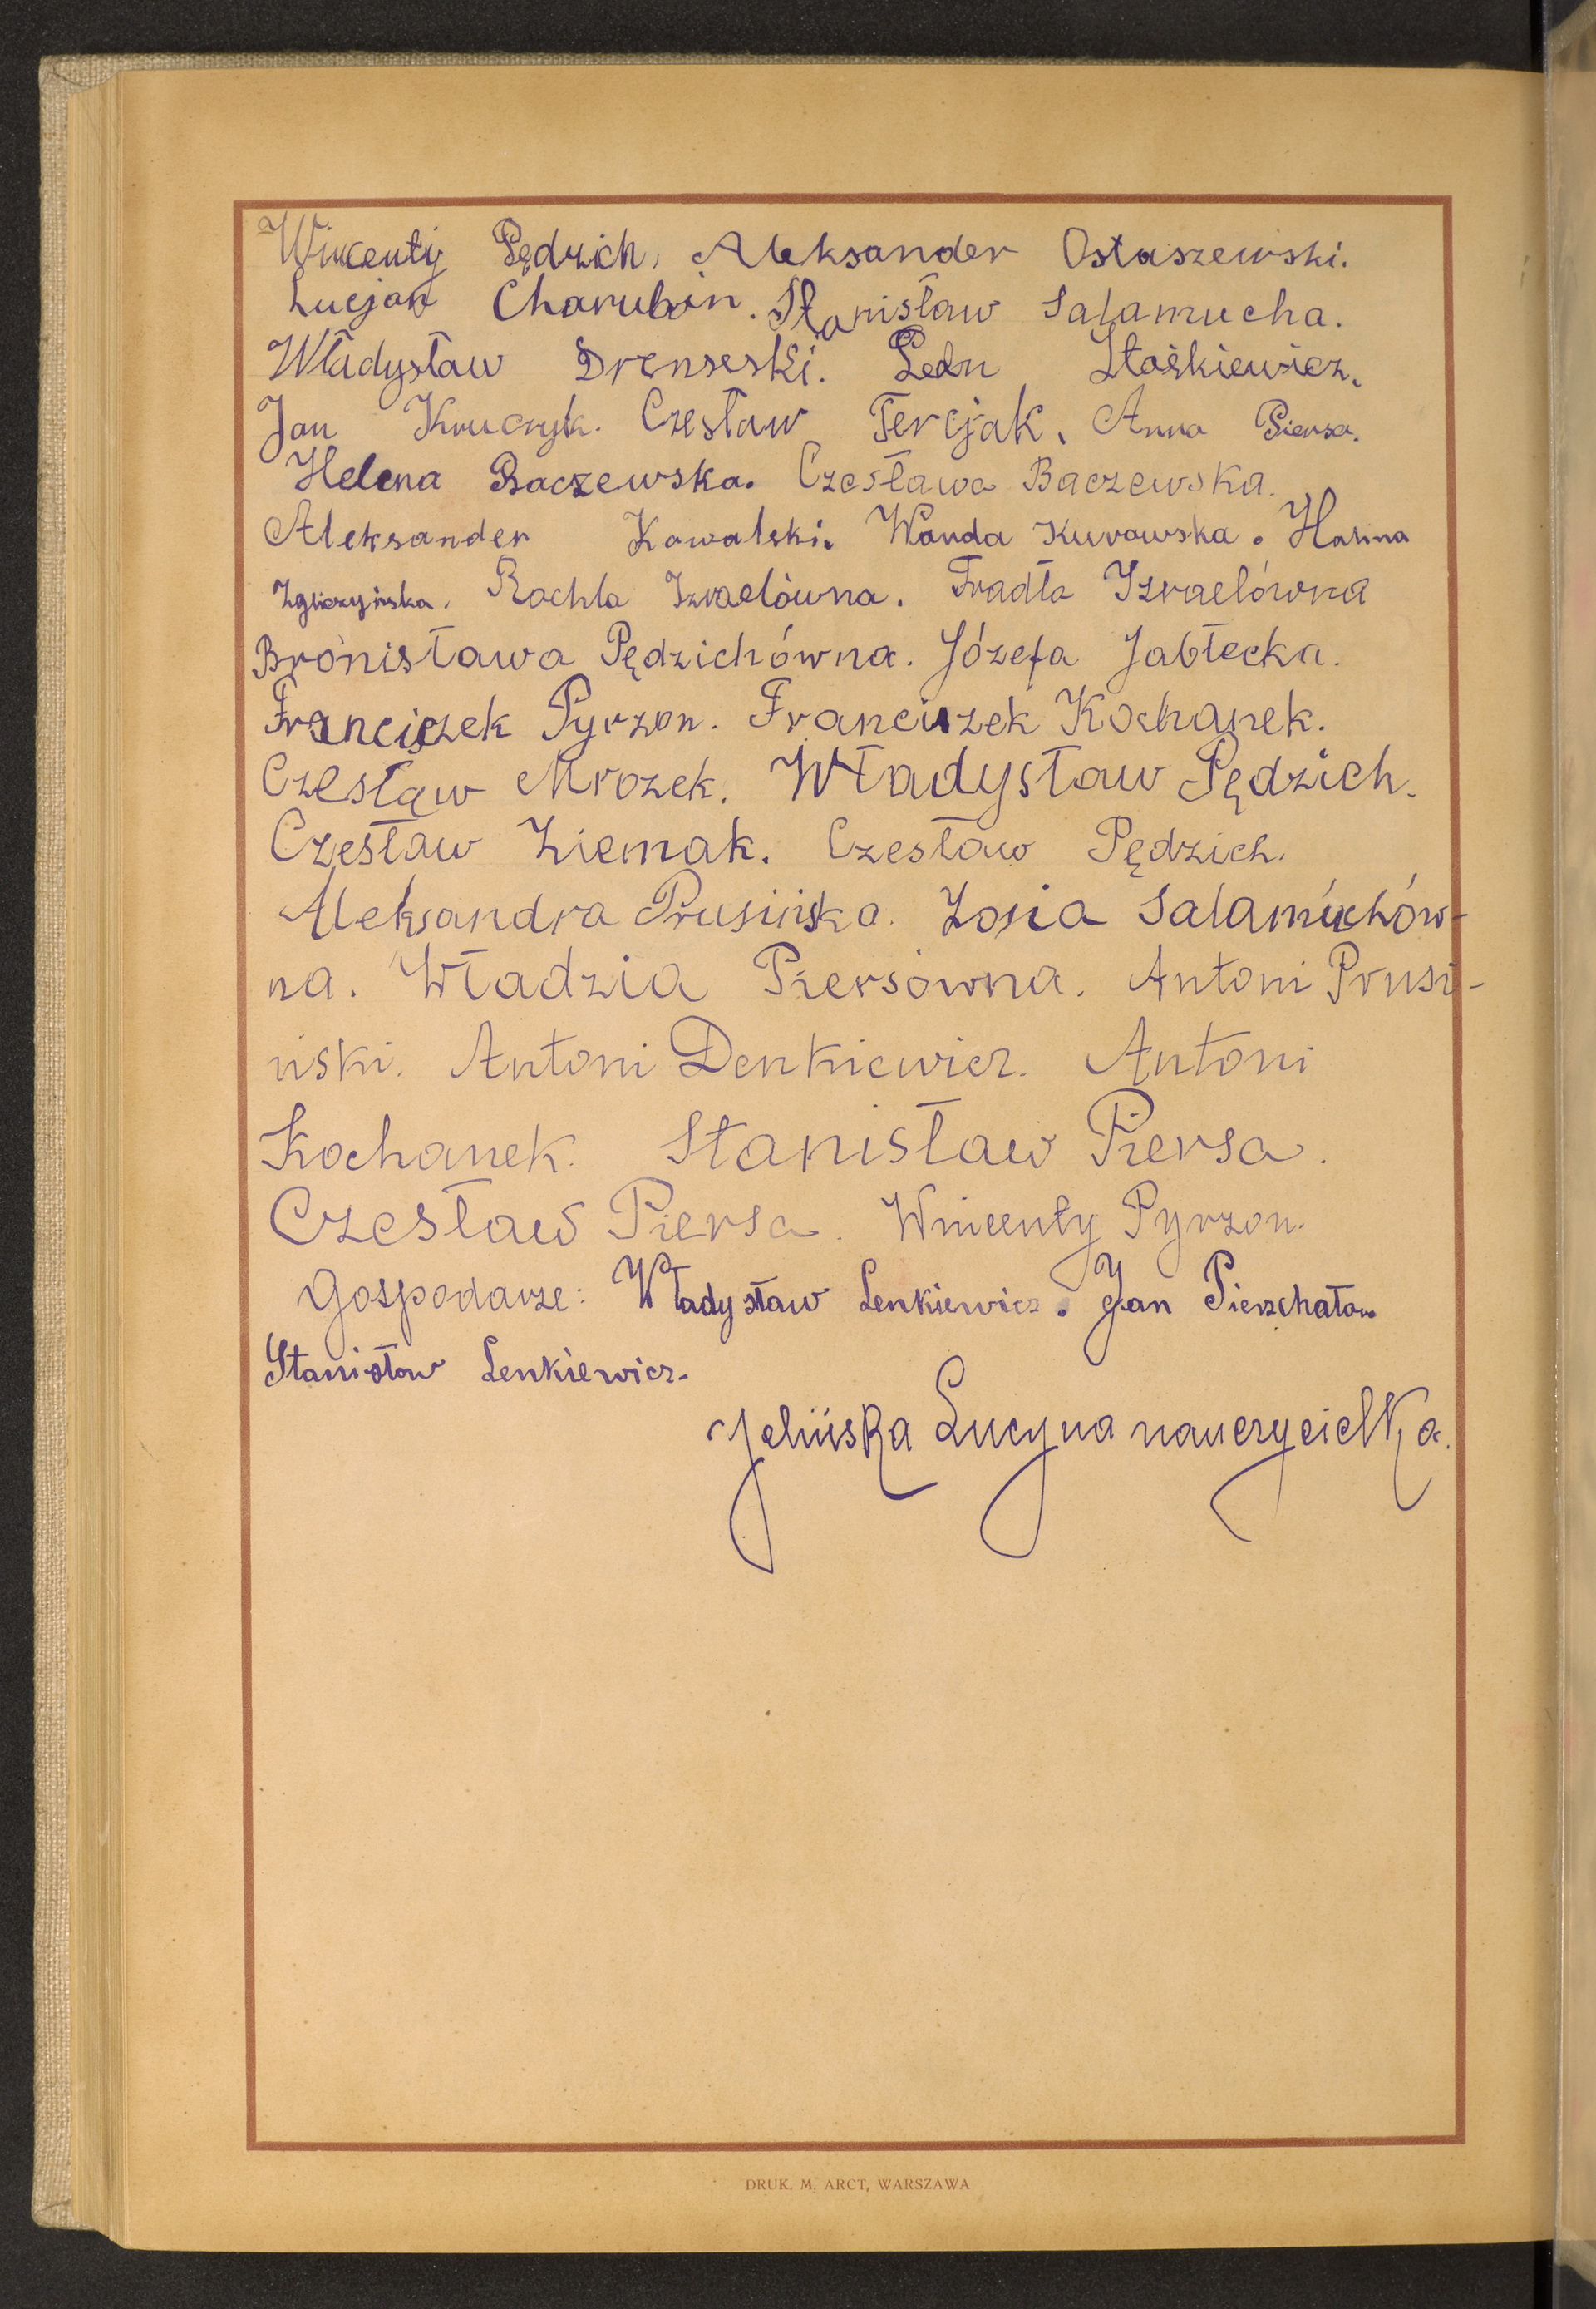 Wincenty Pędzich, Aleksander Ostaszewski.
Lucjan Charubin. Stanisław Salamucha.
Władysław Drenseski. Leon Staśkiewicz.
Jan Kruczyk. Czesław Tercjak. Anna Piersa.
Helena Baczewska. Czesława Baczewska.
Aleksander Kowalski. Wanda Kurowska. Halina
Zgliczyńska. Rachla Izraelówna. Fradła Izraelówna
Bronisława Pędzichówna. Józefa Jabłecka.
Franciszek Pyrzon. Franciszek Kochanek.
Czesław Mrozek. Władysław Pędzich.
Czesław Ziemak. Czesław Pędzich.
Aleksandra Prusińska. Zosia Salamuchów-
na. Władzia Piersówna. Antoni Prusi-
ński. Antoni Denkiewicz. Antoni
Kochanek. Stanisław Piersa.
Czesław Piersa. Wincenty Pyrzon.
Gospodarze: Władysław Lenkiewicz. Jan Pierzchała
Stanisław Lenkiewicz.
Jelińska Lucyna nauczycielka.
DRUK. M. ARCT, WARSZAWA